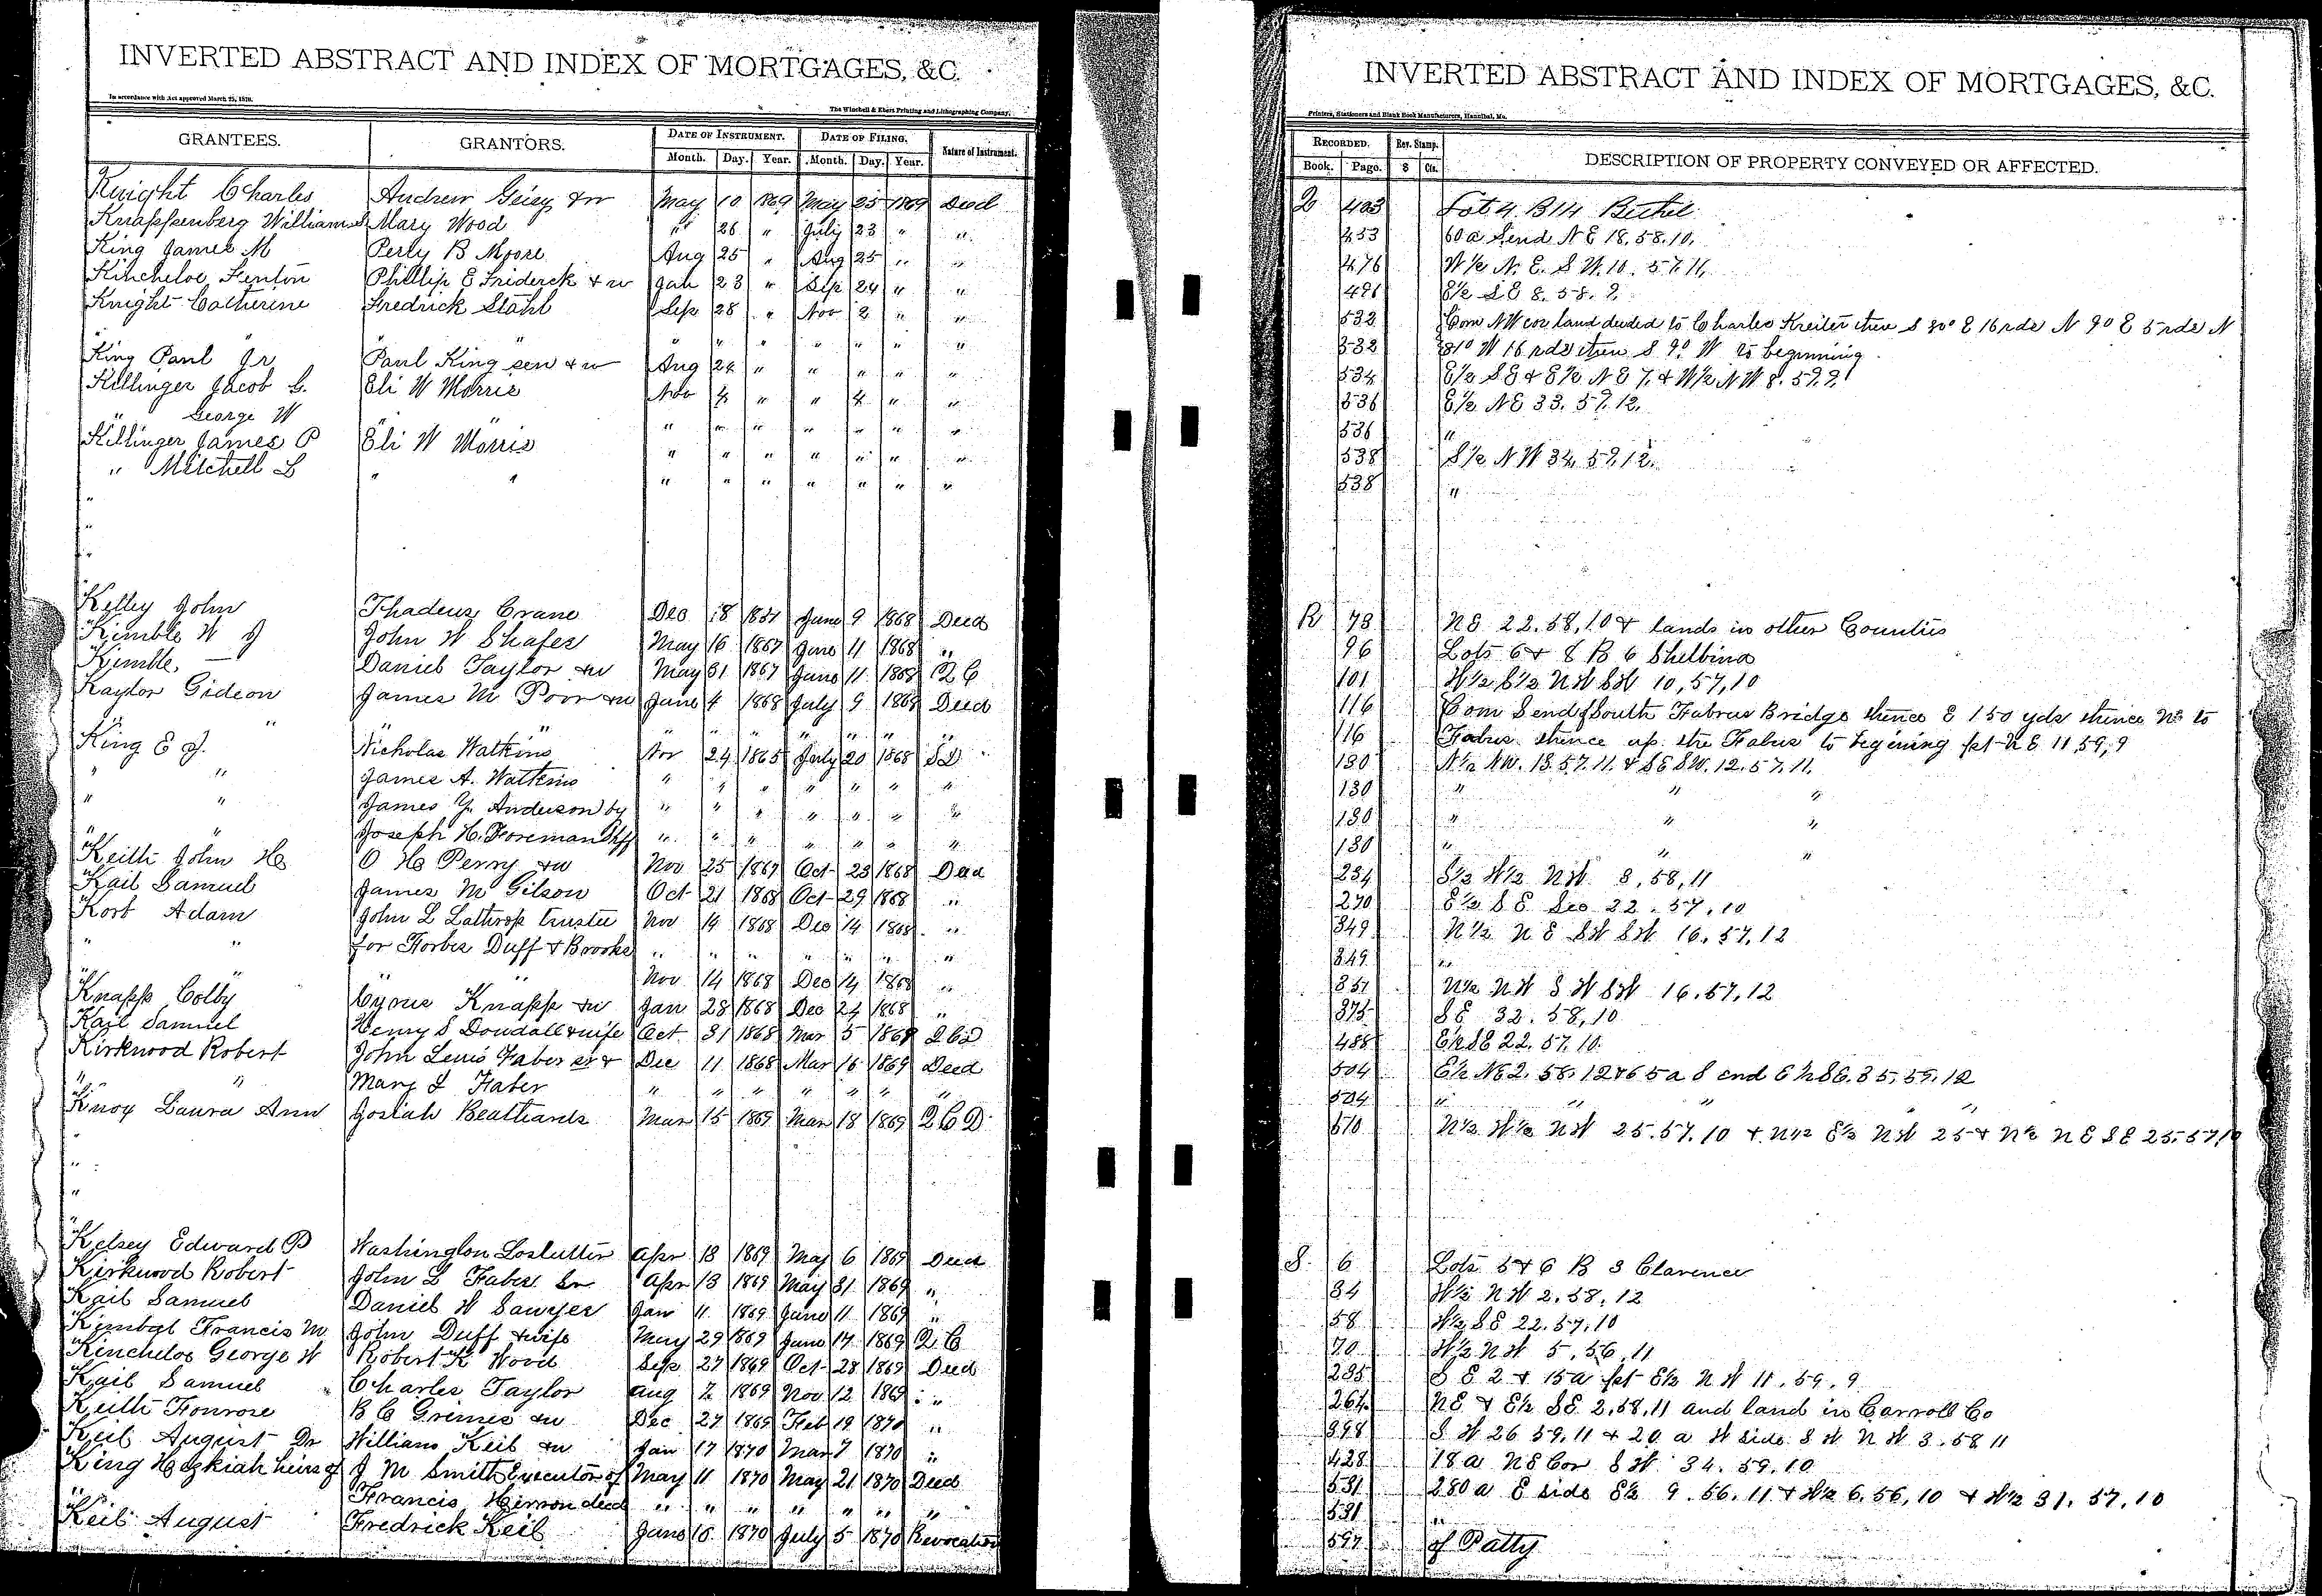 INVERTED ABSTRACT AND INDEX OF MORTGAGES, &C.
In accordance with Act approved March 25, 1870.
The Winchell & Ebert Printing and Lithographing Company,
GRANTEES. GRANTORS. DATE OF INSTRUMENT. DATE OF FILING. Nature of Instrument.
Month. Day. Year. Month. Day. Year.
Knight Charles Andrew Geiey & w May 10 1869 May 25 1869 Deed
Knappenberg William Mary Wood " 26 " July 23 " "
King James M Perry B Moore Aug 25 " Aug 25 " "
Kincheloe Fenton Phillip E Friderck & w Jan 23 " Sep 24 " "
Knight Catherine Fredrick Stahl Sep 28 " Nov 2 " "
" " " " " " " "
King Paul Jr Paul King sen & w Aug 24 " " " " "
Killinger Jacob L. Eli W Morris Nov 4 " " 4 " "
" George W " " " " " " " " "
Killinger James P Eli W Morris " " " " " " "
" Mitchell L " " " " " " " " "
"
"
"
Kelley John Thadeus Crane Dec 18 1837 June 9 1868 Deed
Kimble W J John W Shafer May 16 1867 June 11 1868 "
Kimble, — Daniel Taylor & w May 31 1867 June 11 1868 Q C
Kaylor Gideon James M Poor & w June 4 1868 July 9 1868 Deed
" " " " " " " " " "
King E J. Nicholas Watkins Nov 24 1865 July 20 1868 S D
" " James A. Watkins " " " " " " "
" " James Y. Anderson by " " " " " " "
" " Joseph H. Foreman Shff " " " " " " "
Keith John H O H Perry & w Nov 25 1867 Oct 23 1868 Deed
Kail Samuel James M Gilson Oct 21 1868 Oct 29 1868 "
Korb Adam John L Lathrop trustee Nov 14 1868 Dec 14 1868 "
" " for Forbes Duff & Brooks " " " " " " "
" " " " Nov 14 1868 Dec 14 1868 "
Knapp Colby Cyrus Knapp & w Jan 28 1868 Dec 24 1868 "
Kail Samuel Henry S Doudall & wife Oct 31 1868 Mar 5 1869 Q C D
Kirkwood Robert John Lewis Faber sr & Dec 11 1868 Mar 16 1869 Deed
" " Mary I Faber " " " " " " "
Knox Laura Ann Josiah Bealhards Mar 15 1869 Mar 18 1869 Q C D
"
"
"
Kelsey Edward P Washington Loslutter Apr 13 1869 May 6 1869 Deed
Kirkwood Robert John L Faber Sr Apr 13 1869 May 31 1869 "
Kail Samuel Daniel W Sawyer Jan 11 1869 June 11 1869 "
Kimbal Francis M John Duff & wife May 29 1869 June 17 1869 Q C
Kincheloe George W Robert K Wood Sep 27 1869 Oct 28 1869 Deed
Kail Samuel Charles Taylor Aug 2 1869 Nov 12 1869 "
Keith Fonrose B C Grimes & w Dec 27 1869 Feb 19 1870 "
Keil August Dr William Keil & w Jan 17 1870 Mar 7 1870 "
King Hezkiah heirs of J M Smith Executor of May 11 1870 May 21 1870 Deed
" Francis Hirron decd " " " " " " "
Keil August Fredrick Keil June 15 1870 July 5 1870 Revocation
INVERTED ABSTRACT AND INDEX OF MORTGAGES, &C.
Printers, Stationers and Blank Book Manufacturers, Hannibal, Mo.
RECORDED. Rev. Stamp. DESCRIPTION OF PROPERTY CONVEYED OR AFFECTED.
Book. Page. $ Cts.
Q 403 Lot 4 B 14 Bethel
453 60 a S end N E 18, 58, 10,
476 W ½ N. E. S W. 10. 57. 11.
491 E ½ S E 8. 58. 9.
532 Com NW cor land deeded to Charles Kreiter then S 80° E 16 rds N 9° E 5 rds N
532 81° W 16 rds then S 9° W to beginning
534 E ½ S E & E ½ N E 7, & W ½ N W 8. 59. 9.
536 E ½ N E 33. 57. 12.
536 "
538 S ½ N W 34. 57. 12.
538 "
R 73 N E 22. 58, 10 & lands in other Counties
96 Lots 6 & 8 B 6 Shelbina
101 W ½ E ½ N W S W 10, 57, 10
116 Com S end of South Fabrus Bridge thence E 150 yds thence N to
116 Fabus thence up the Fabus to begining pt N E 11, 59, 9
130 N ½ NW. 13. 57. 11. & SE SW. 12. 57. 11.
130 " " "
130 " " "
130 " " "
234 S ½ W ½ N W 8, 58, 11
270 E ½ S E Sec 22. 57, 10
349 N ½ N E S W S W 16. 57, 12
349 "
351 N ½ N W S W S W 16. 57, 12
375 S E 32. 58, 10
488 E ½ S E 22. 57. 10.
504 E ½ N E 2. 58. 12 & 65 a S end E ½ S E. 35. 59. 12
504 " " "
510 N ½ W ½ N W 25. 57. 10 & N ½ E ½ N W 25 & N ½ N E S E 25. 57, 10
S. 6 Lots 5 & 6 B 3 Clarence
34 W ½ N W 2. 58, 12
58 W ½ S E 22. 57, 10
70 W ½ N W 5, 56, 11
235 S E 2 & 15 a pt E ½ N W 11. 59. 9
264 N E & E ½ S E 2, 58, 11 and land in Carroll Co
398 S W 26 59, 11 & 20 a W side S W N W 3. 58 11
428 18 a N E Cor S W 34. 59. 10
531 280 a E side E ½ 9. 56. 11 & W ½ 6, 56, 10 & W ½ 31. 57, 10
531 "
597 of Patty